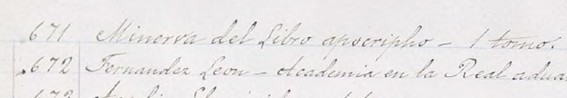 671 Minerva del Libro apocripho - 1 tomo.
672 Fernandez Leon - Academia en la Real adua
673